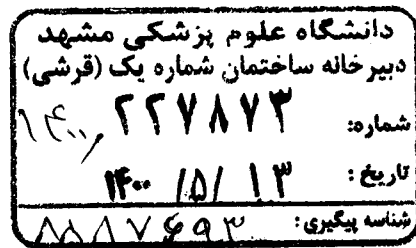 دانشگاه علوم پزشکی مشهد
دبیرخانه ساختمان شماره یک (قرشی)
شماره: ۲۲۷۸۷۳
۱۴۰۰/
تاریخ: ۱۴۰۰/۵/۱۳
شناسه پیگیری: ۸۵۸۷۶۹۳